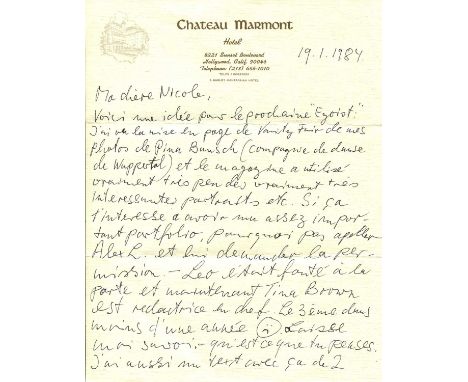 CHATEAU MARMONT
Hotel
8221 Sunset Boulevard
Hollywood, Calif. 90046
Telephone (213) 656-1010
19.1.1984
Ma chère Nicole,
Voici une idée pour le prochaine "Egoïst".
J'ai vu la mise en page de Vanity Fair de mes
photos de Pina Bausch (compagnie de danse
de Wuppertal) et le magazine a utilisé
vraiment très peu des vraiment très
interessantes portraits etc. Si ça
t'interesse d'avoir un assez impor-
tant portfolio, pourquoi pas
Alex L. et lui demander la per-
mission. – Leo était fouté à la
porte et maintenant Tina Brown
est redactrice en chef. Le 3ème dans
moins d'une année Laisse
moi savoir qu'est ce que tu penses.
J'ai aussi un text avec ça de 2